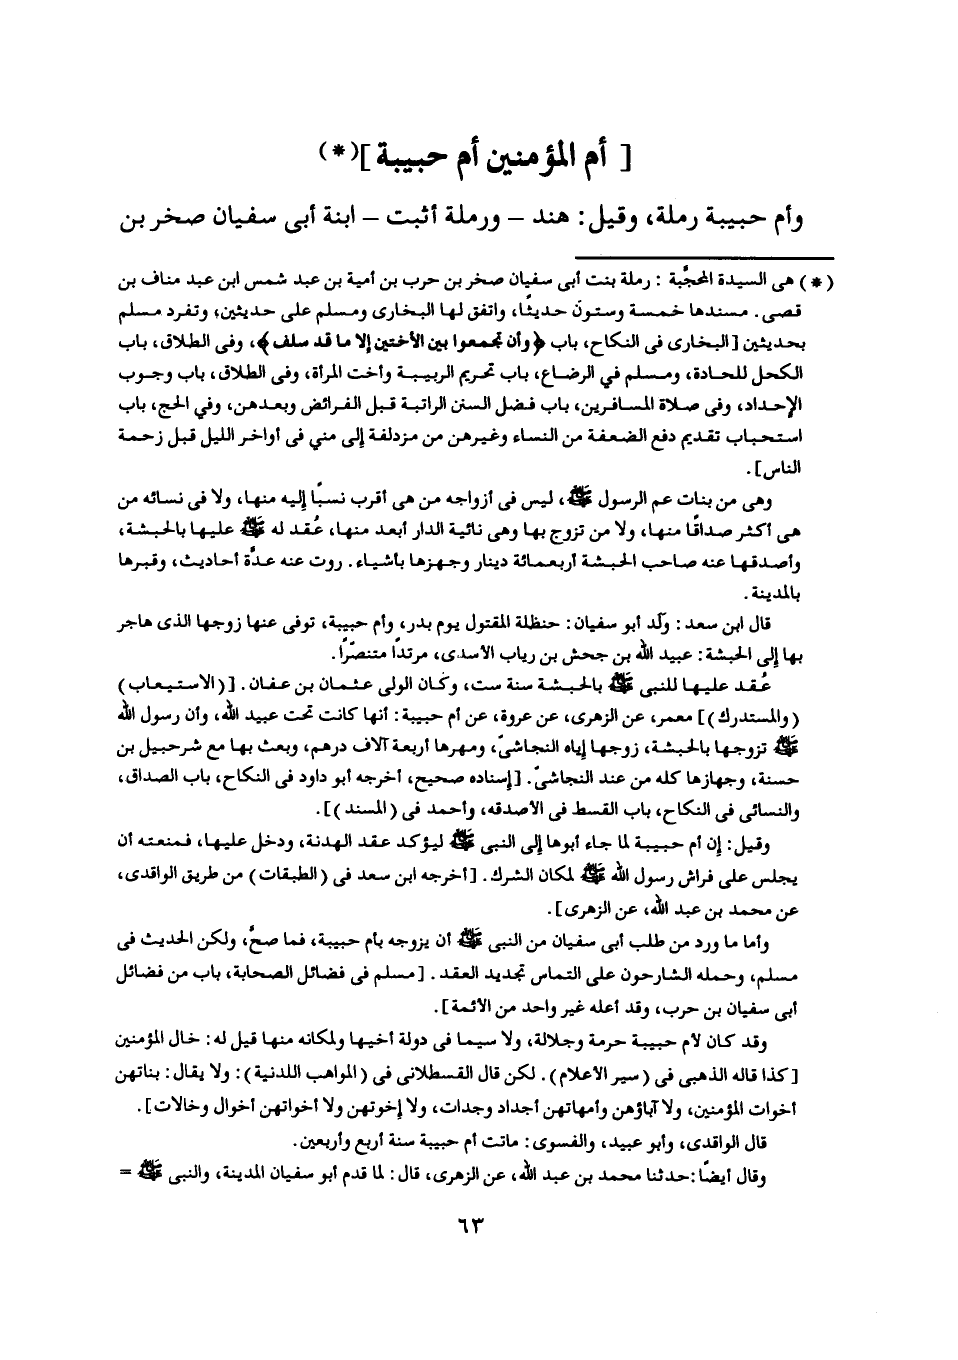 [ أم المؤمنين أم حبيبة ](*)
وأم حبيبة رملة، وقيل: هند – ورملة أثبت – ابنة أبى سفيان صخر بن
(*) هى السيدة المحجَّبة : رملة بنت أبى سفيان صخر بن حرب بن أمية بن عبد شمس ابن عبد مناف بن
قصى. مسندها خمسة وستون حديثًا، واتفق لها البخارى ومسلم على حديثين، وتفرد مسلم
بحديثين [البخارى فى النكاح، باب ﴿وأن تجمعوا بين الأختين إلا ما قد سلف﴾، وفى الطلاق، باب
الكحل للحادة، ومسلم في الرضاع، باب تحريم الربيبة وأخت المرأة، وفى الطلاق، باب وجوب
الإحداد، وفى صلاة المسافرين، باب فضل السنن الراتبة قبل الفرائض وبعدهن، وفي الحج، باب
استحباب تقديم دفع الضعفة من النساء وغيرهن من مزدلفة إلى مني فى أواخر الليل قبل زحمة
الناس].
وهى من بنات عم الرسول ﷺ، ليس فى أزواجه من هى أقرب نسبًا إليه منها، ولا فى نسائه من
هى أكثر صداقًا منها، ولا من تزوج بها وهى نائية الدار أبعد منها، عُقد له ﷺ عليها بالحبشة،
وأصدقها عنه صاحب الحبشة أربعمائة دينار وجهزها بأشياء. روت عنه عدَّة أحاديث، وقبرها
بالمدينة.
قال ابن سعد: ولَد أبو سفيان: حنظلة المقتول يوم بدر، وأم حبيبة، توفى عنها زوجها الذى هاجر
بها إلى الحبشة: عبيد الله بن جحش بن رياب الأسدى، مرتدًا متنصّرًا.
عُقد عليها للنبى ﷺ بالحبشة سنة ست، وكان الولى عثمان بن عفان. [(الاستيعاب)
(والمستدرك)] معمر، عن الزهرى، عن عروة، عن أم حبيبة: أنها كانت تحت عبيد الله، وأن رسول الله
ﷺ تزوجها بالحبشة، زوجها إياه النجاشىّ، ومهرها أربعة آلاف درهم، وبعث بها مع شرحبيل بن
حسنة، وجهازها كله من عند النجاشىّ. [إسناده صحيح، أخرجه أبو داود فى النكاح، باب الصداق،
والنسائى فى النكاح، باب القسط فى الأصدقه، وأحمد فى (المسند)].
وقيل: إن أم حبيبة لما جاء أبوها إلى النبى ﷺ ليؤكد عقد الهدنة، ودخل عليها، فمنعته أن
يجلس على فراش رسول الله ﷺ لمكان الشرك. [أخرجه ابن سعد فى (الطبقات) من طريق الواقدى،
عن محمد بن عبد الله، عن الزهرى].
وأما ما ورد من طلب أبى سفيان من النبى ﷺ أن يزوجه بأم حبيبة، فما صحَّ، ولكن الحديث فى
مسلم، وحمله الشارحون على التماس تجديد العقد. [مسلم فى فضائل الصحابة، باب من فضائل
أبى سفيان بن حرب، وقد أعله غير واحد من الأئمة].
وقد كان لأم حبيبة حرمة وجلالة، ولا سيما فى دولة أخيها ولمكانه منها قيل له: خال المؤمنين
[كذا قاله الذهبى فى (سير الأعلام). لكن قال القسطلانى فى (المواهب اللدنية): ولا يقال: بناتهن
أخوات المؤمنين، ولا آباؤهن وأمهاتهن أجداد وجدات، ولا إخوتهن ولا أخواتهن أخوال وخالات].
قال الواقدى، وأبو عبيد، والفسوى: ماتت أم حبيبة سنة أربع وأربعين.
وقال أيضًا: حدثنا محمد بن عبد الله، عن الزهرى، قال: لما قدم أبو سفيان المدينة، والنبى ﷺ =
٦٣